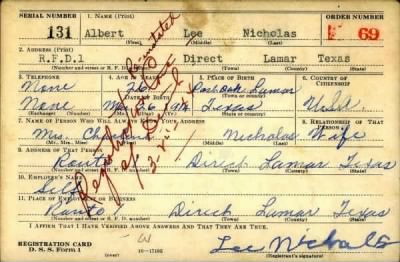 SERIAL NUMBER 1. NAME (Print) ORDER NUMBER
131 Albert Lee Nicholas 69
(First) (Middle) (Last)
2. ADDRESS (Print)
R.F.D.1 Direct Lamar Texas
(Number and street or R. F. D. number) (Town) (County) (State)
3. TELEPHONE 4. AGE IN YEARS 5. PLACE OF BIRTH 6. COUNTRY OF CITIZENSHIP
None 26 Lamar
DATE OF BIRTH
None Texas
(Exchange) (Number) (Mo.) (Day) (Yr.) (State or country)
7. NAME OF PERSON WHO WILL ALWAYS KNOW YOUR ADDRESS 8. RELATIONSHIP OF THAT PERSON
Mrs. Nicholas Wife
(Mr., Mrs., Miss) (First) (Middle) (Last)
9. ADDRESS OF THAT PERSON
Route Direct Lamar Texas
(Number and street or R. F. D. number) (Town) (County) (State)
10. EMPLOYER'S NAME
Self
11. PLACE OF EMPLOYMENT OR BUSINESS
Route Direct Lamar Texas
(Number and street or R. F. D. number) (Town) (County) (State)
I AFFIRM THAT I HAVE VERIFIED ABOVE ANSWERS AND THAT THEY ARE TRUE.
REGISTRATION CARD
D. S. S. Form 1 (over) Lee Nichols
(Registrant's signature)